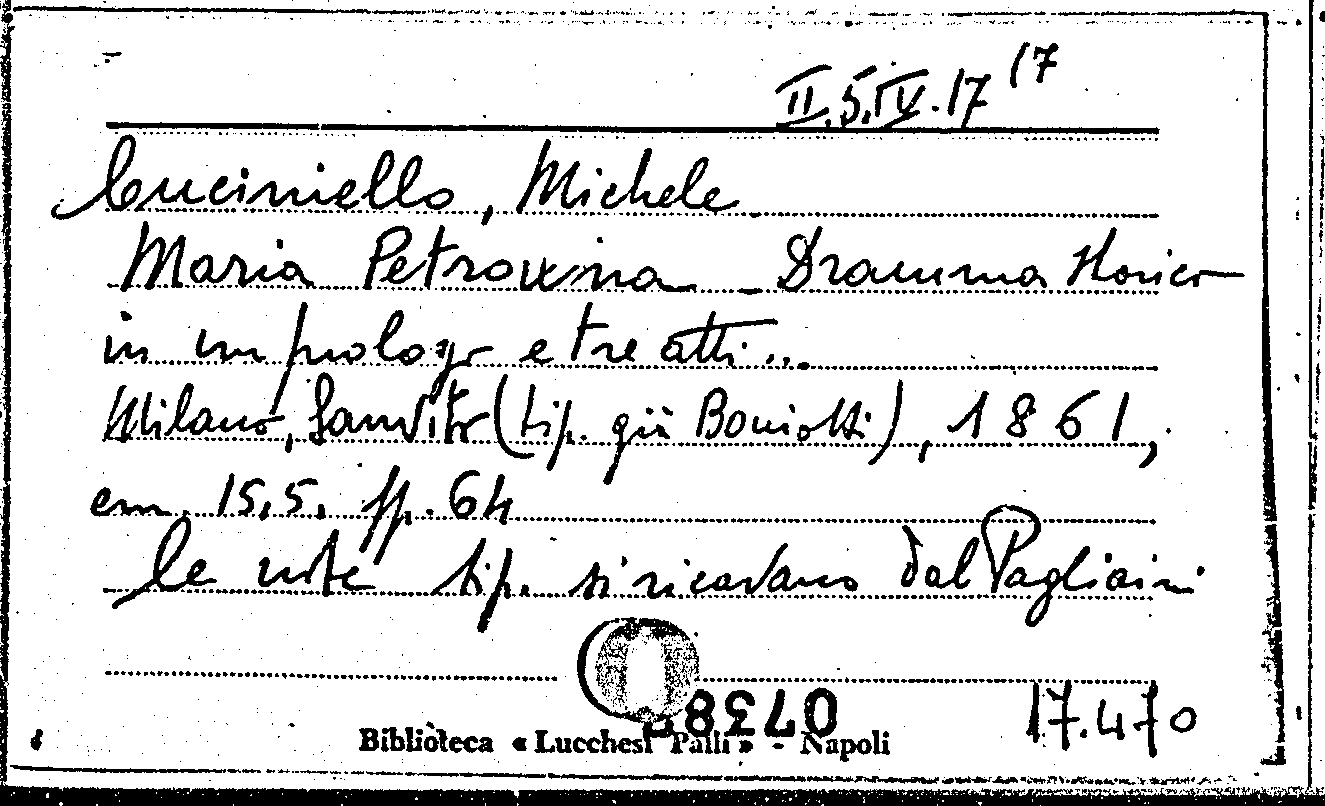 II.5.IV.17 17
Cuciniello, Michele
Maria Petrowna - Dramma storico
in un prologo e tre atti...
Milano, Sanvito (tip. già Boniotti), 1861,
cm. 15,5. pp. 64
le note tip. si ricavano dal Pagliaini
17.470
Biblioteca « Lucchesi Palli » - Napoli